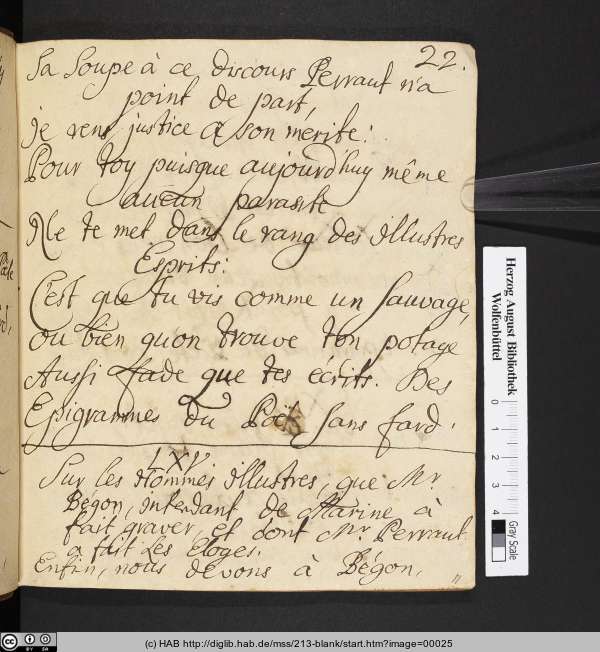 22.
Sa Soupe à ce discours Perraut n'a
point de part,
Je rens justice à son merite:
Pour toy puisque aujourd'huy même
aucun parasite
Ne te met dans le rang des illustres
Esprits:
C'est que tu vis comme un Sauvage,
ou bien qu'on trouve ton potage
Aussi fade que tes écrits. Des
Epigrammes du Poët Sans fard.
LXV
Sur les Hommes illustres, que Mr.
Bégon, intendant de Marine à
fait graver, et dont Mr. Perraut
a fait Les Eloges.
Enfin, nous devons à Bégon,
Herzog August Bibliothek
Wolfenbüttel
0 1 2 3 4
Gray Scale
(c) HAB http://diglib.hab.de/mss/213-blank/start.htm?image=00025
cc BY SA